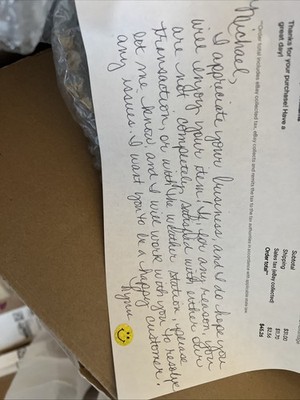 Thanks for your purchase! Have a
great day!
**Order total includes eBay collected tax. eBay collects and remits the tax to the tax authorities in accordance with applicable
Subtotal
Shipping
Sales tax (eBay collected)
Order total**
Michael,
I appreciate your business, and I do hope you
will enjoy your item! If for any reason, you
are not completely satisfied with either our
transaction, or with the weather station, please
let me know, and I will work with you to resolve
any issues. I want you to be a happy customer!